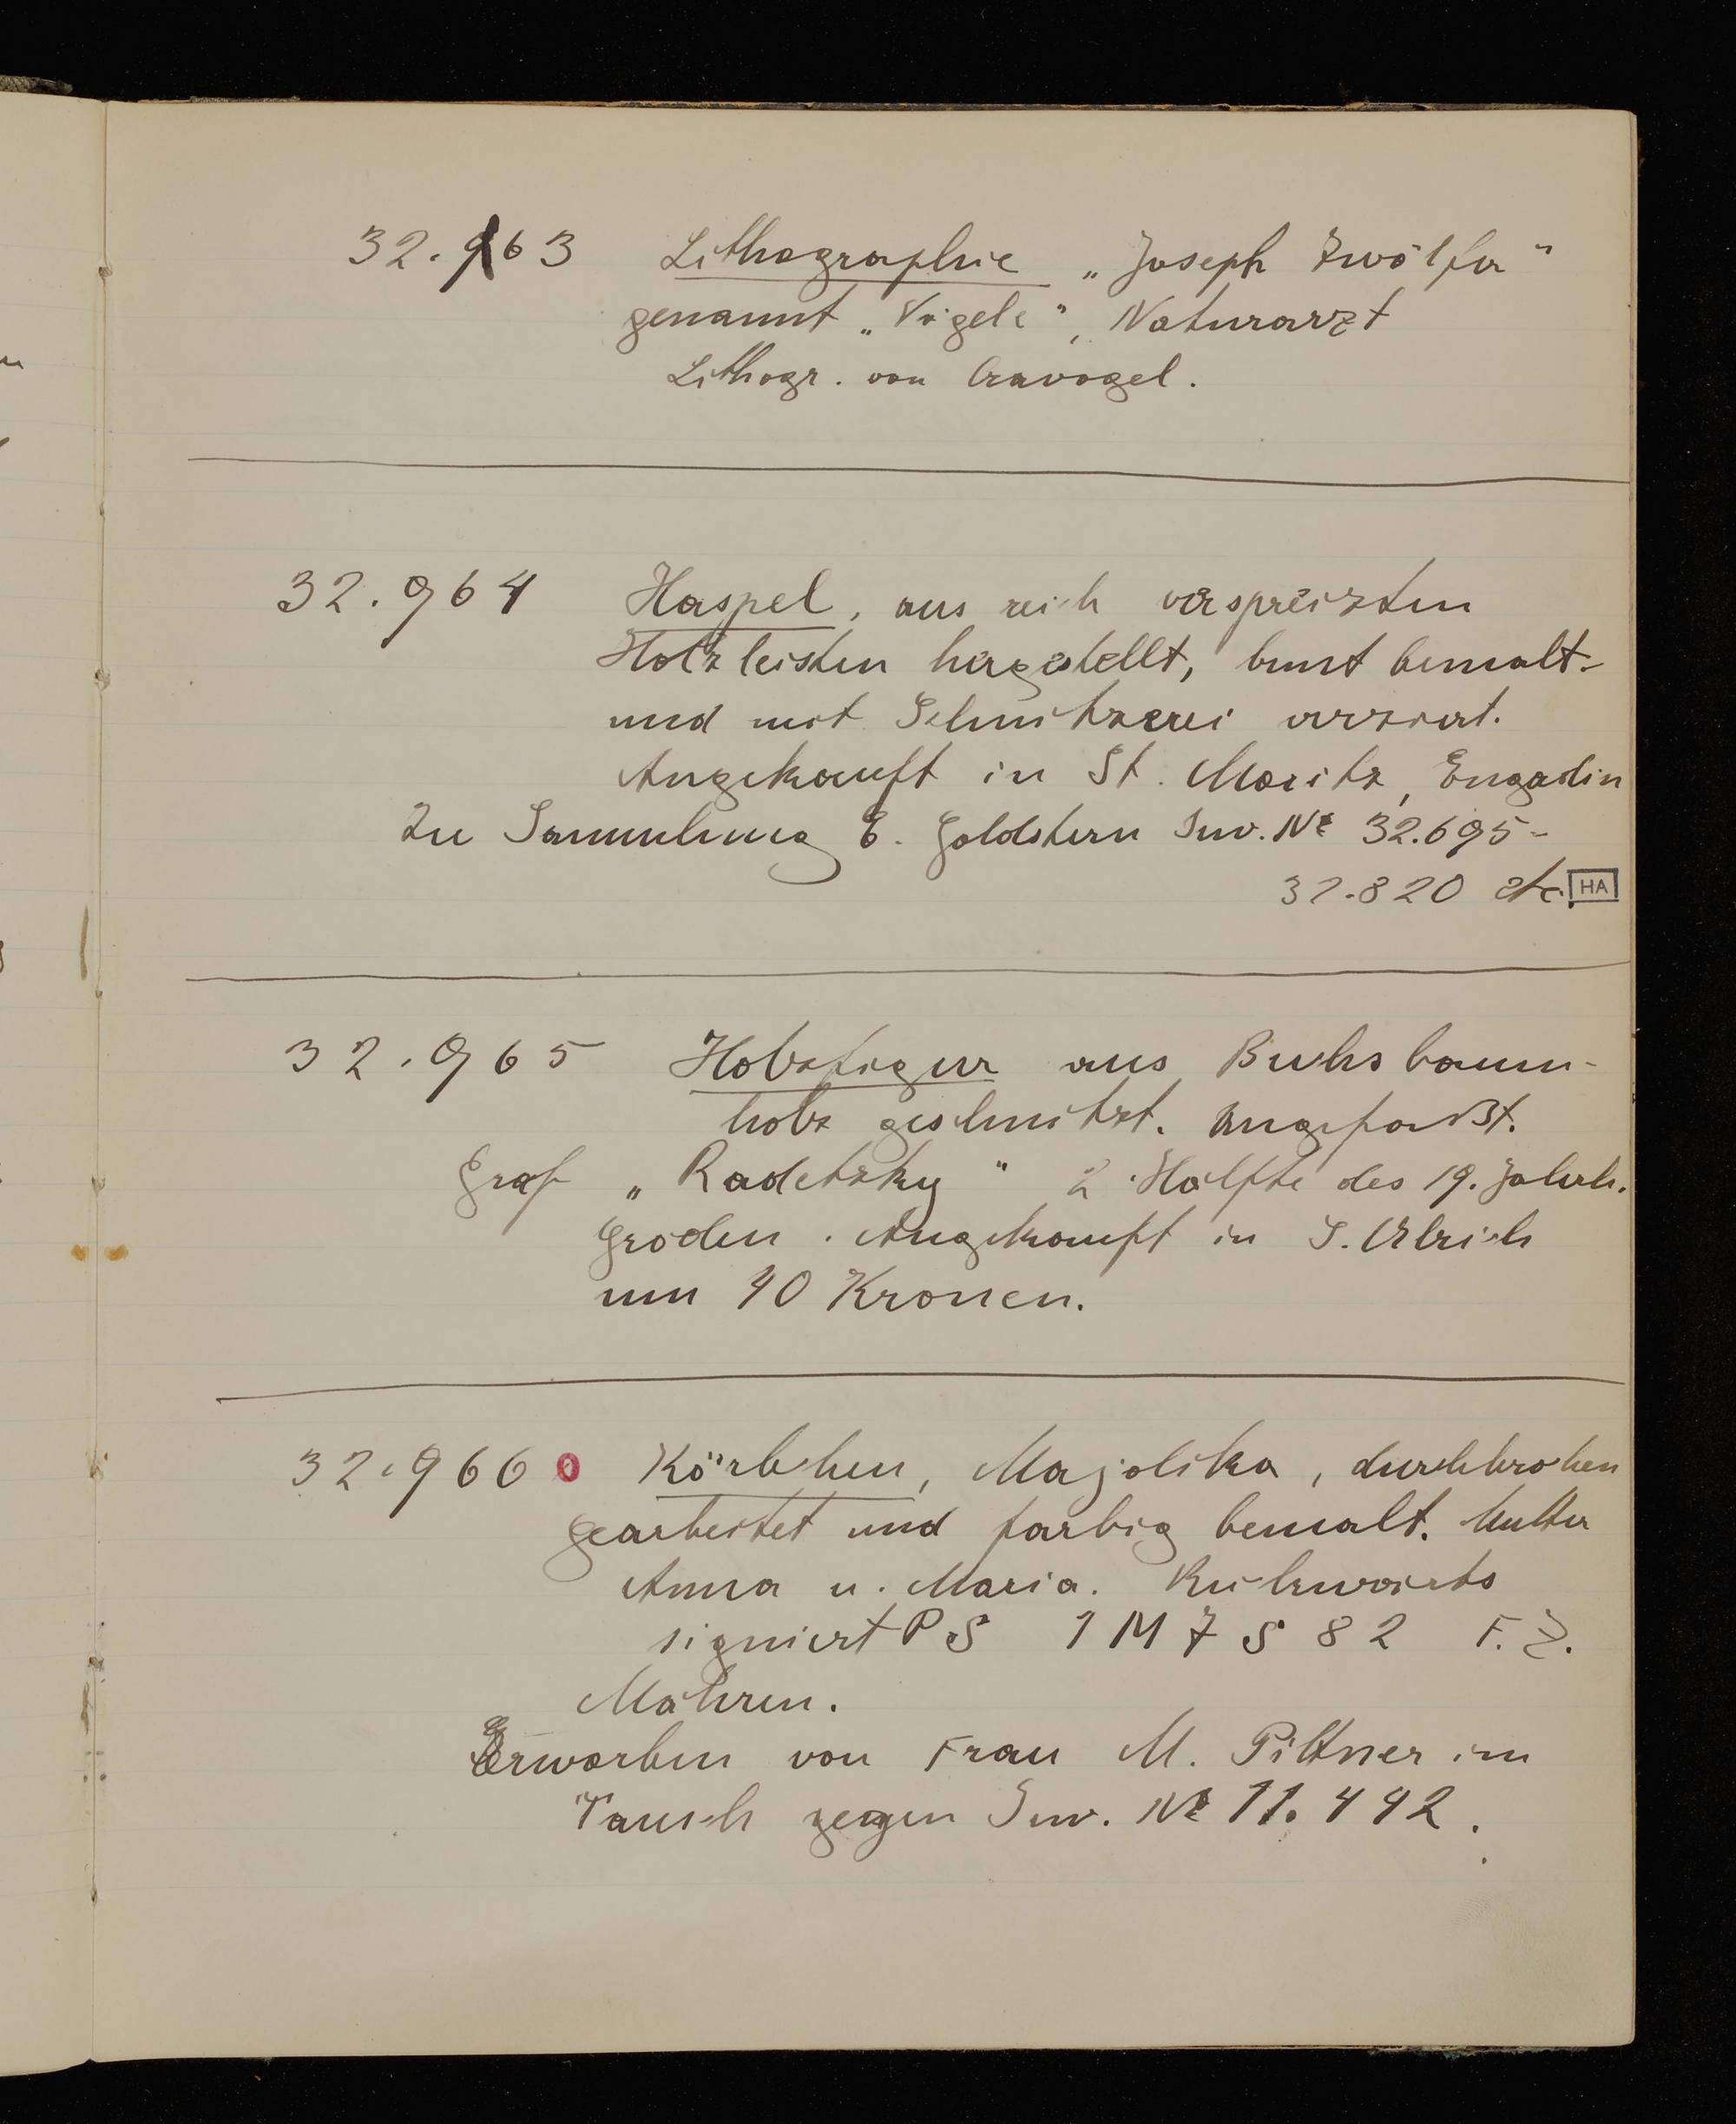 32.963 Lithographie „Joseph Zwölfer“
genannt „Vögele“, Naturarzt
Lithogr. von Cravogel.
32.964 Haspel, aus reich verspreizten
Holzleisten hergestellt, bunt bemalt
und mit Schnitzerei verziert.
Angekauft in St. Moritz, Engadin
Zu Sammlung E. Goldstern Inv. № 32.695-
32.820 etc. HA
32.965 Holzfigur aus Buchsbaum-
holz geschnitzt. ungefaßt.
Graf „Radetzky“ 2. Hälfte des 19. Jahrh.
Gröden. Angekauft in S. Ulrich
um 40 Kronen.
32.966 0 Körbchen, Majolika, durchbrochen
gearbeitet und farbig bemalt. Mutter
Anna u. Maria. Rückwärts
signiert PS 1 M 7 S 8 2 F. Z.
Mähren.
Erworben von Frau M. Pittner im
Tausch gegen Inv. № 11.442.